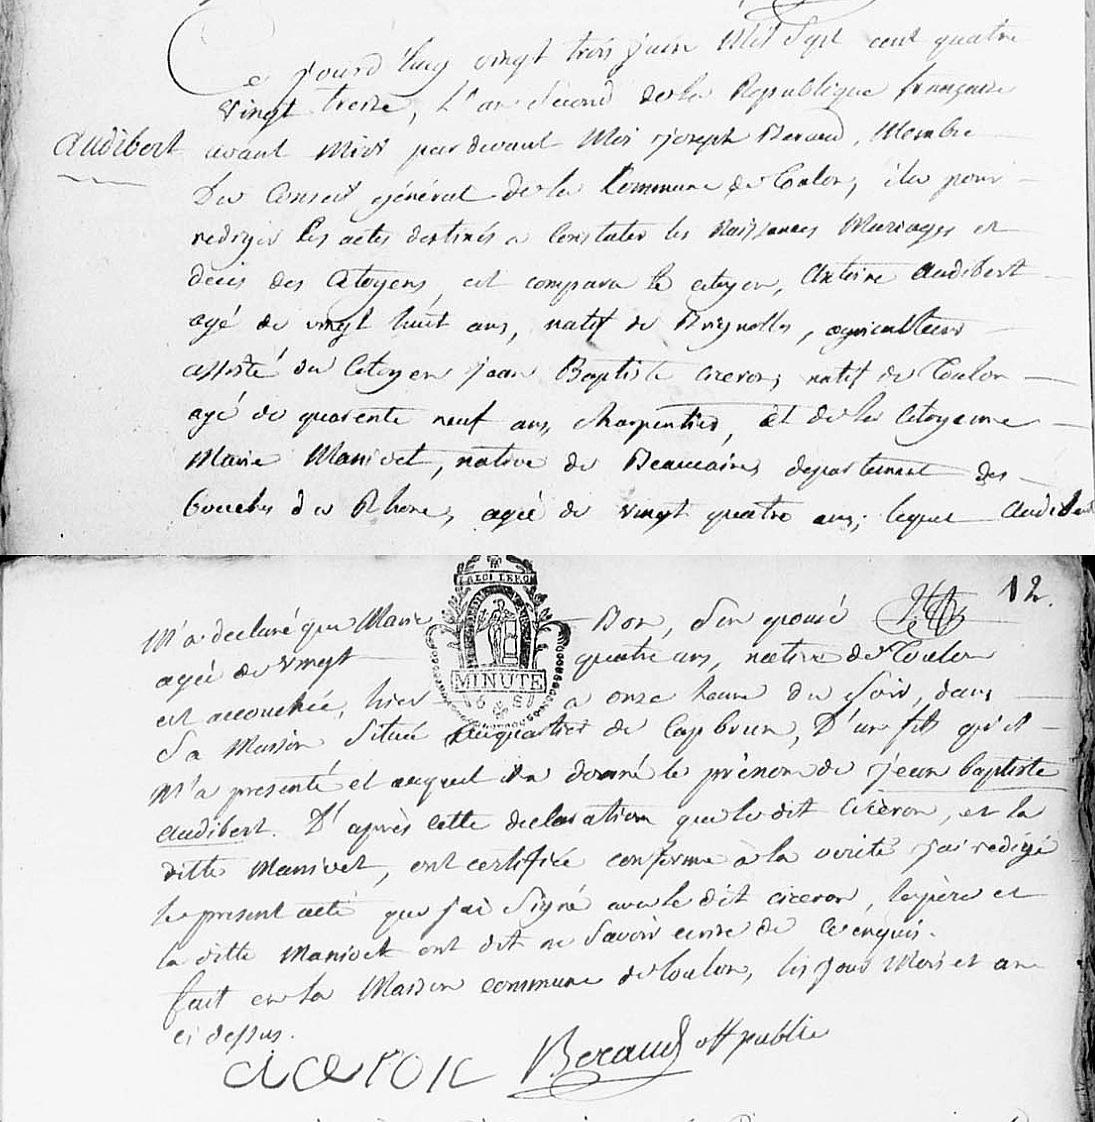 Ce jourd'huy vingt trois juin Mil Sept cent quatre
Vingt treize, L'an Second de la Republique française
Audibert
avant Midi par devant Moi joseph Beraud, Membre
Du Conseil général de la Commune de Toulon, élu pour
rediger les actes destinés a Constater les Naissances Mariages et
décès des Citoyens, est comparu le citoyen, Antoine Audibert
agé de vingt huit ans, natif de Brignolles, agriculteur
assisté du Citoyen jean Baptiste ciceron, natif de Toulon
agé de quarente neuf ans, charpentier, et de la Citoyenne
Marie Manivet, native de Beaucaire, departement des
bouches du Rhone, agée de vingt quatre ans; lequel Audibert
12.
M'a declaré que Marie Bon, son epouse
agée de vingt quatre ans, native de Toulon
est accouchée, hier a onze heure du Soir, dans
Sa Maison Située au quartier de Capbrun, D'un fils qu'il
M'a presenté et auquel il a donné le prénom de jean baptiste
audibert. D'après cette declaration que le dit Ciceron, et la
ditte Manivet, ont certifiée conforme a la verité j'ai redigé
le present acte que j'ai Signé avec le dit ciceron, le père et
la ditte Manivet ont dit ne Savoir ecrire de ce enquis.
fait en la Maison commune de Toulon, les jour Mois et an
ci dessus.
ciceron Beraud off public
LA LOI LE ROI
MINUTE